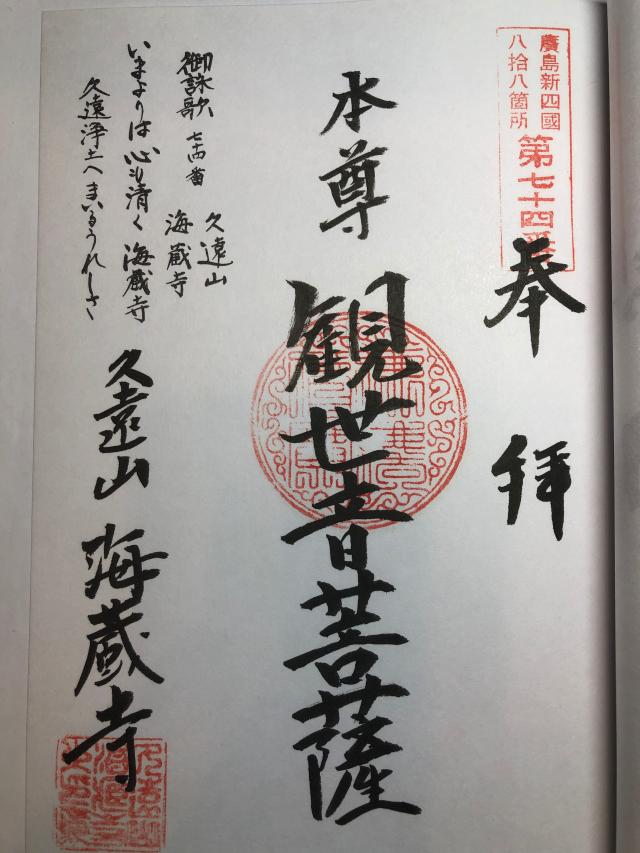 廣島新四國
八拾八箇所
第七十四番
奉拝
本尊
観世音菩薩
御詠歌 七十四番
久遠山
海蔵寺
いまよりは心も清く海蔵寺
久遠浄土へまいるうれしさ
久遠山 海蔵寺